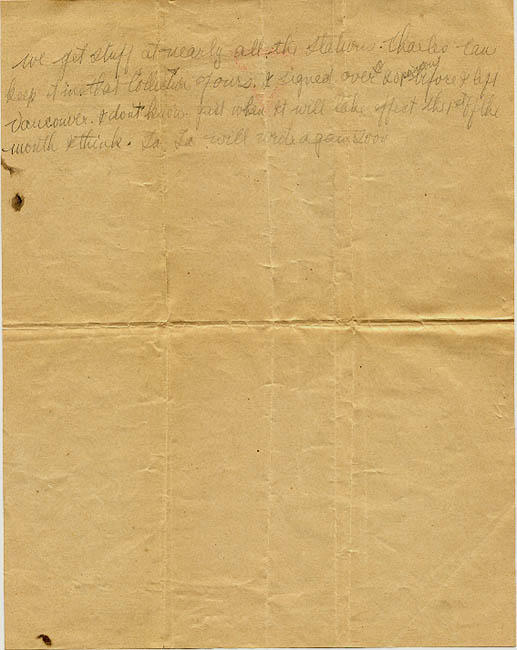 we get stuff at nearly all the stations. Charles can
keep it in that Collection of ours. I signed over before I left
Vancouver. I dont know just when it will take effect the 1st of the
month I think. Ta, Ta will write again soon